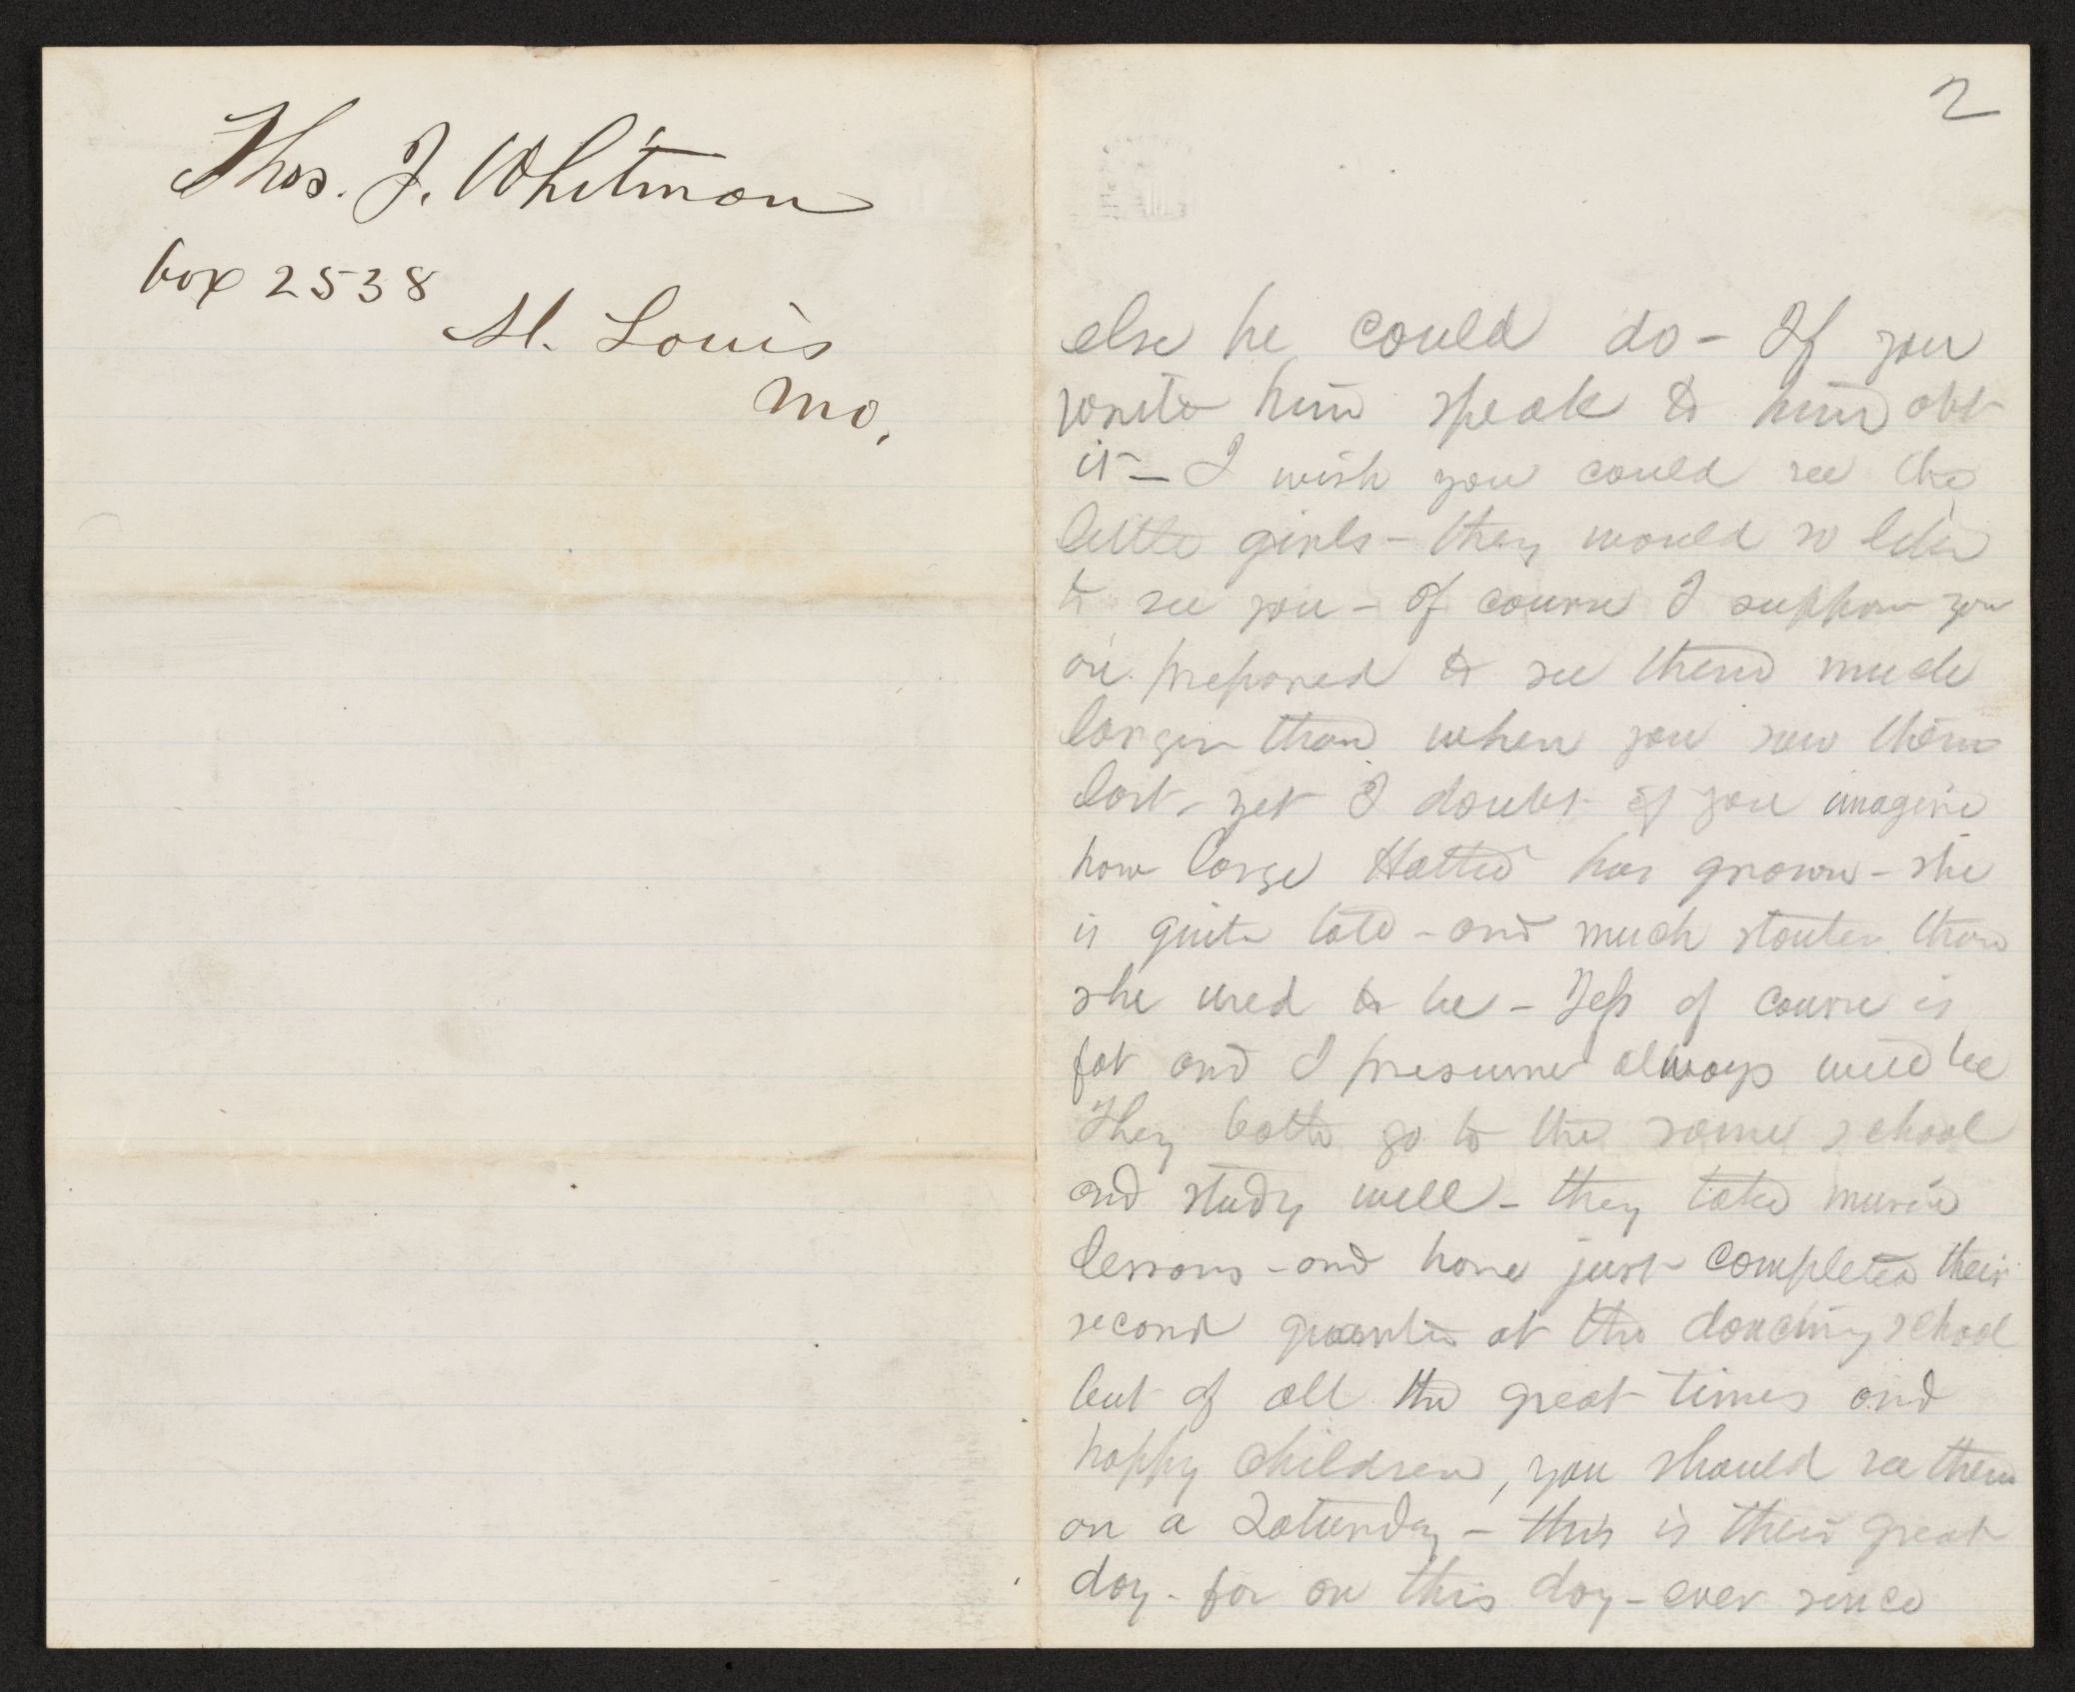 Thos. J. Whitman
box 2538
St. Louis
Mo.
2
else he could do – If you
write him speak to him abt
it – I wish you could see the
little girls – they would so like
to see you – of course I suppose you
are prepared to see them much
larger than when you saw them
last – yet I doubt if you imagine
how large Hattie has grown – she
is quite tall – and much stouter than
she used to be – Jess of course is
fat and I presume always will be
They both go to the same school
and study well – they take music
lessons – and have just completed their
second quarter at the dancing school
but of all the great times and
happy children, you should see them
on a Saturday – this is their great
day – for on this day – ever since